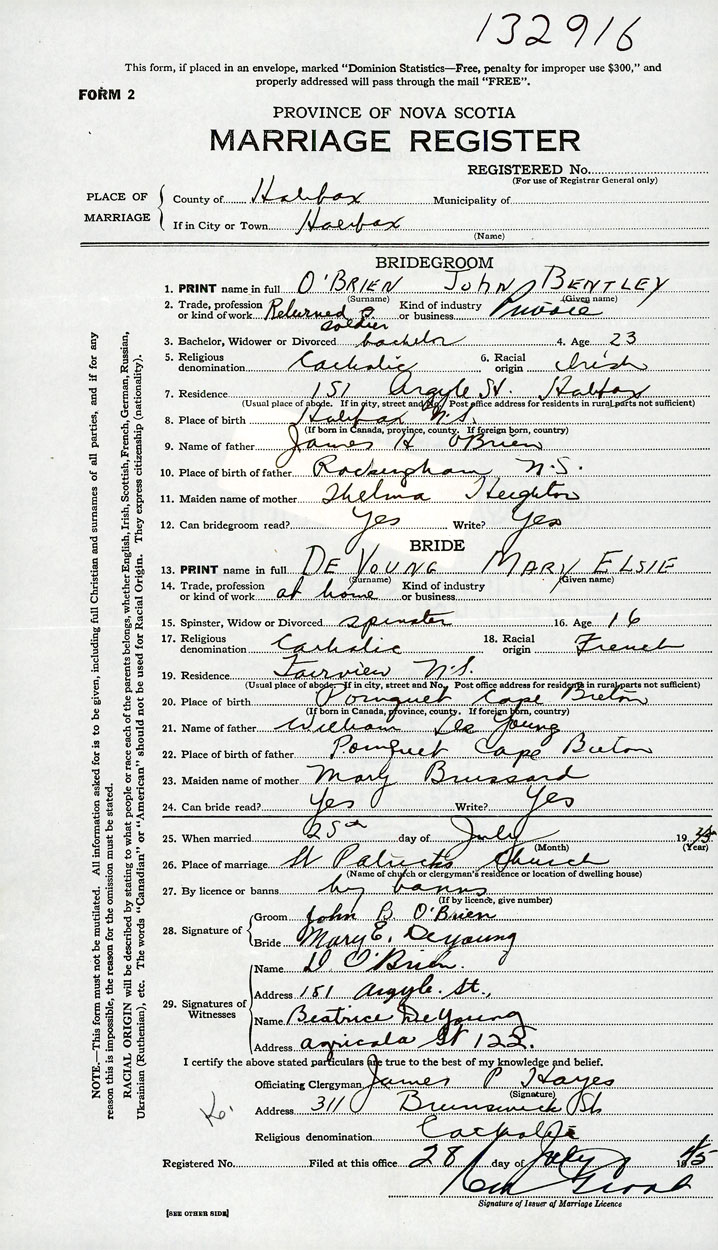 132916
This form, if placed in an envelope, marked "Dominion Statistics—Free, penalty for improper use $300," and
properly addressed will pass through the mail "FREE".
FORM 2
PROVINCE OF NOVA SCOTIA
MARRIAGE REGISTER
REGISTERED No.
(For use of Registrar General only)
PLACE OF MARRIAGE
County of Halifax Municipality of
If in City or Town Halifax
(Name)
BRIDEGROOM
1. PRINT name in full O'BRIEN JOHN BENTLEY
(Surname) (Given name)
2. Trade, profession or kind of work Returned soldier Kind of industry or business
3. Bachelor, Widower or Divorced bachelor 4. Age 23
5. Religious denomination Catholic 6. Racial origin Irish
7. Residence 151 Argyle St. Halifax
(Usual place of abode. If in city, street and No. Post office address for residents in rural parts not sufficient)
8. Place of birth Halifax N.S.
(If born in Canada, province, county. If foreign born, country)
9. Name of father James H O'Brien
10. Place of birth of father Rockingham N.S.
11. Maiden name of mother Thelma Heighton
12. Can bridegroom read? Yes Write? Yes
BRIDE
13. PRINT name in full DE YOUNG MARY ELSIE
(Surname) (Given name)
14. Trade, profession or kind of work at home Kind of industry or business
15. Spinster, Widow or Divorced spinster 16. Age 16
17. Religious denomination Catholic 18. Racial origin French
19. Residence Fairview N.S.
(Usual place of abode. If in city, street and No. Post office address for residents in rural parts not sufficient)
20. Place of birth Pomquet Cape Breton
(If born in Canada, province, county. If foreign born, country)
21. Name of father William De Young
22. Place of birth of father Pomquet Cape Breton
23. Maiden name of mother Mary Brussard
24. Can bride read? Yes Write? Yes
25. When married 25th day of July 19 45
(Month) (Year)
26. Place of marriage St Patrick's Church
(Name of church or clergyman's residence or location of dwelling house)
27. By licence or banns by banns
(If by licence, give number)
28. Signature of
Groom John B. O'Brien
Bride Mary E. Deyoung
29. Signatures of Witnesses
Name D O'Brien.
Address 151 Argyle. St.,
Name Beatrice DeYoung
Address agricola St 122.
I certify the above stated particulars are true to the best of my knowledge and belief.
Officiating Clergyman James P Hayes
(Signature)
Address 311 Brunswick St
Religious denomination Catholic
Registered No. Filed at this office 28 day of July 19 45
Signature of Issuer of Marriage Licence
[SEE OTHER SIDE]
NOTE.—This form must not be mutilated. All information asked for is to be given, including full Christian and surnames of all parties, and if for any
reason this is impossible, the reason for the omission must be stated.
RACIAL ORIGIN will be described by stating to what people or race each of the parents belongs, whether English, Irish, Scottish, French, German, Russian,
Ukrainian (Ruthenian), etc. The words "Canadian" or "American" should not be used for Racial Origin. They express citizenship (nationality).